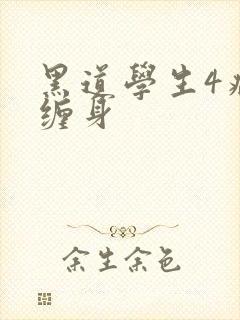 黑道學生4病
缠身
余生余色